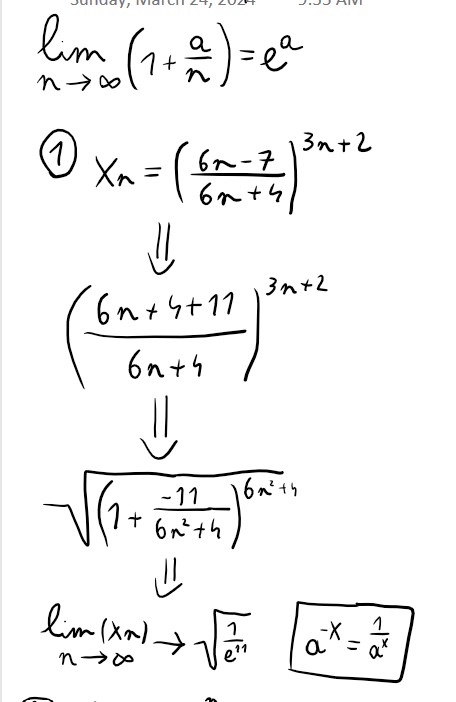 Sunday, March 24, 2024 9:53 AM
lim n→∞ (1 + a/n) = e^a
① Xn = ((6n-7)/(6n+4))^(3n+2)
⇓
((6n+4+11)/(6n+4))^(3n+2)
⇓
√((1 + (-11)/(6n²+4))^(6n²+4))
⇓
lim n→∞ (Xn) → √(1/e^11) a^-x = 1/a^x